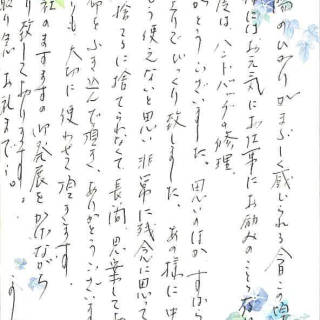 陽のひかりがまぶしく感じられる今日この頃
にはお元気にお仕事にお励みのことと存じ
度は、ハンドバッグの修理、
がとうございました。思いのほか、すばら
上りでびっくり致しました。あの様に中
もう使えないと思い非常に残念に思って
捨てるに捨てられなくて長間思案して
命をふき込んで頂き、ありがとうございま
りも大切に使わせて頂きます。
社のますますの御発展をかげながら
り致しております。
取り急ぎお礼まで。